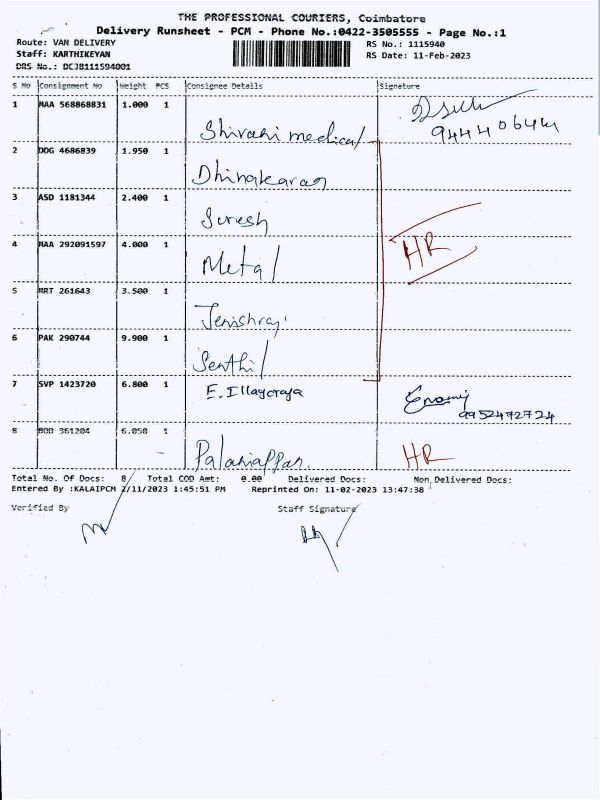 THE PROFESSIONAL COURIERS, Coimbatore
Delivery Runsheet - PCM - Phone No.:0422-3505555 - Page No.:1
Route: VAN DELIVERY RS No.: 1115940
Staff: KARTHIKEYAN RS Date: 11-Feb-2023
DRS No.: DCJB111594001
S No Consignment No Weight PCS Consignee Details Signature
1 MAA 568868831 1.000 1 Shivani medical
2 DDG 4686839 1.950 1 Dhinakaran
3 ASD 1181344 2.400 1 Suresh
4 MAA 292091597 4.000 1 Metal HR
5 MRT 261643 3.500 1 Jenishraj
6 PAK 290744 9.900 1 Senthil
7 SVP 1423720 6.800 1 E. Illayaraja 9952472724
8 361204 6.050 1 Palaniappan. HR
Total No. Of Docs: 8 Total COD Amt: 0.00 Delivered Docs: Non Delivered Docs:
Entered By :KALAIPCM 2/11/2023 1:45:51 PM Reprinted On: 11-02-2023 13:47:38
Verified By Staff Signature